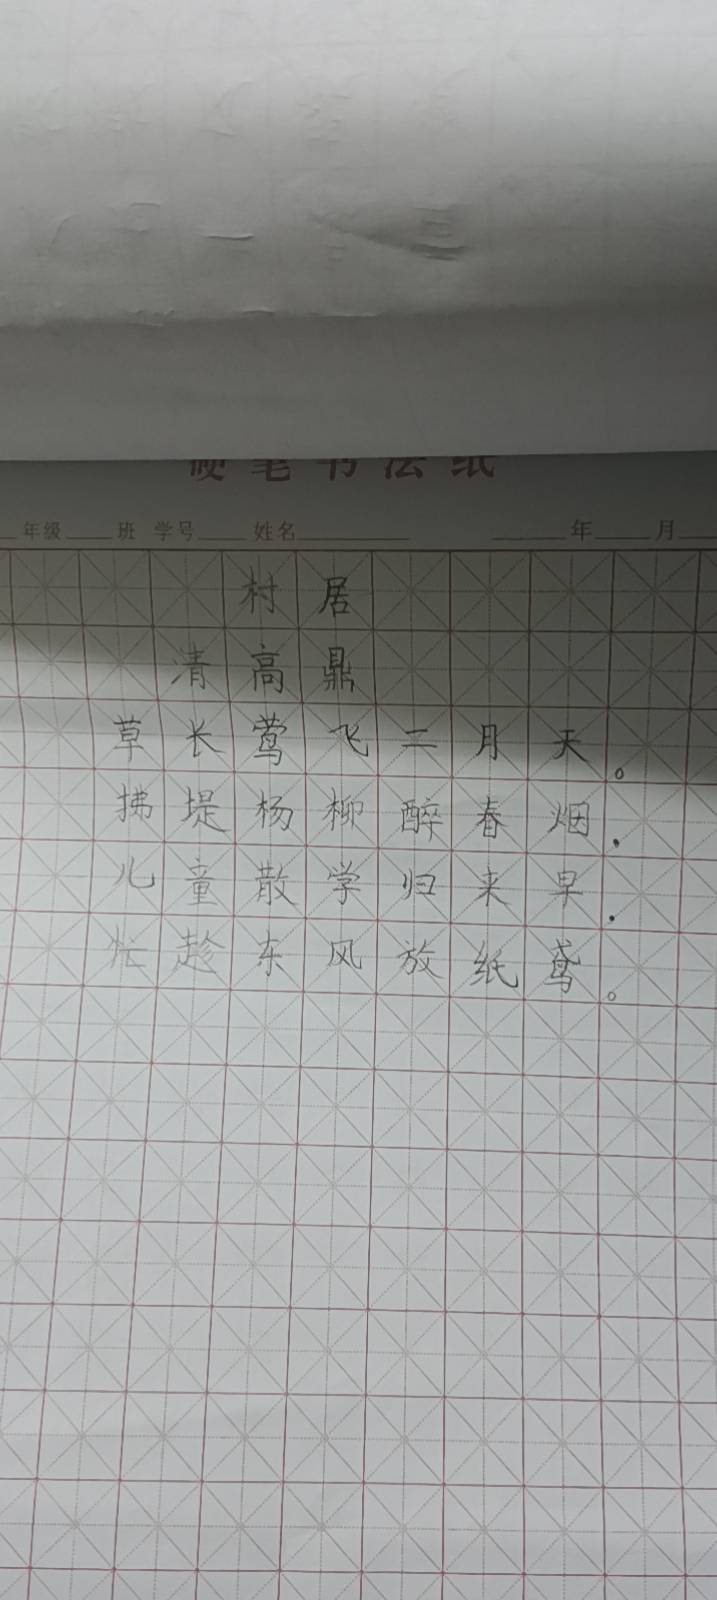 硬笔书法纸
年级 班 学号 姓名 年 月
村居
清 高鼎
草长莺飞二月天。
拂堤杨柳醉春烟.
儿童散学归来早.
忙趁东风放纸鸢。